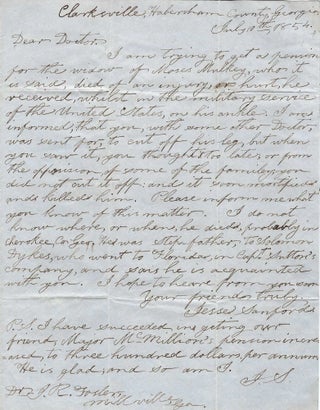 Clarksville, Habersham County, Georgia
July 10th, 1854,
Dear Doctor.
I am trying to get a pension
for the widow of Moses Mulkey, who it
is said, died of an injury, or hurt, he
received, whilst in the military service
of the United States, on his ankle. I am
informed, that you, with some other Doctor,
was sent for, to cut off his leg, but when
you saw it, you thought too late, or from
the opposision of some of the family, you
did not cut it off: and it soon mortified
and killed him. Please inform me what
you know of this matter. I do not
know where, or when, he died, probably in
Cherokee, Co. Geo, He was step father, to Solomon
Sykes, who went to Floridar, in Capt. Sutton's
company, and says he is acquainted
with you. I hope to heare from you soon
Your friend truly.
Jesse Sanford
P.S. I have succeeded, in geting our
friend, Major McMillion's pension increas
ased, to three hundred dollars, per annum
He is glad: and so am I. J. S.
Dr. J. R. Foster,